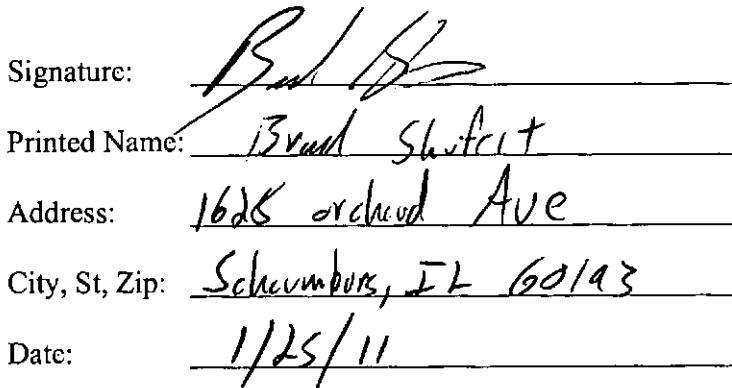 Signature:
Printed Name: Brad
Address: 1625 orchard Ave
City, St, Zip: Schaumburg, IL 60193
Date: 1/25/11